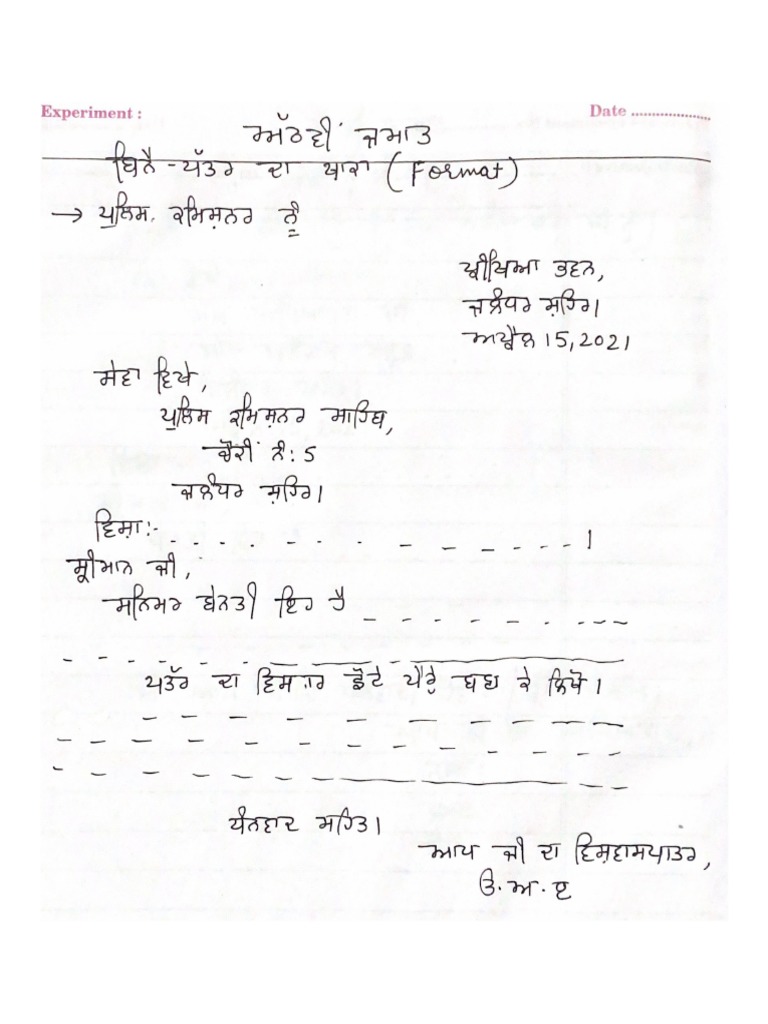 Experiment : Date ......................
ਅੱਠਵੀਂ ਜਮਾਤ
ਬਿਨੈ-ਪੱਤਰ ਦਾ ਖਾਕਾ (Format)
→ ਪੁਲਿਸ ਕਮਿਸ਼ਨਰ ਨੂੰ
ਪ੍ਰੀਖਿਆ ਭਵਨ,
ਜਲੰਧਰ ਸ਼ਹਿਰ।
ਅਪ੍ਰੈਲ 15, 2021
ਸੇਵਾ ਵਿਖੇ,
ਪੁਲਿਸ ਕਮਿਸ਼ਨਰ ਸਾਹਿਬ,
ਚੌਂਕੀ ਨੰ: 5
ਜਲੰਧਰ ਸ਼ਹਿਰ।
ਵਿਸ਼ਾ:- - - - - - - - - - - - - - - ।
ਸ੍ਰੀਮਾਨ ਜੀ,
ਸਨਿਮਰ ਬੇਨਤੀ ਇਹ ਹੈ - - - - - - - - - -
ਪੱਤਰ ਦਾ ਵਿਸਥਾਰ ਛੋਟੇ ਪੈਰ੍ਹੇ ਬਣਾ ਕੇ ਲਿਖੋ।
ਧੰਨਵਾਦ ਸਹਿਤ।
ਆਪ ਜੀ ਦਾ ਵਿਸ਼ਵਾਸਪਾਤਰ,
ੳ.ਅ.ੲ